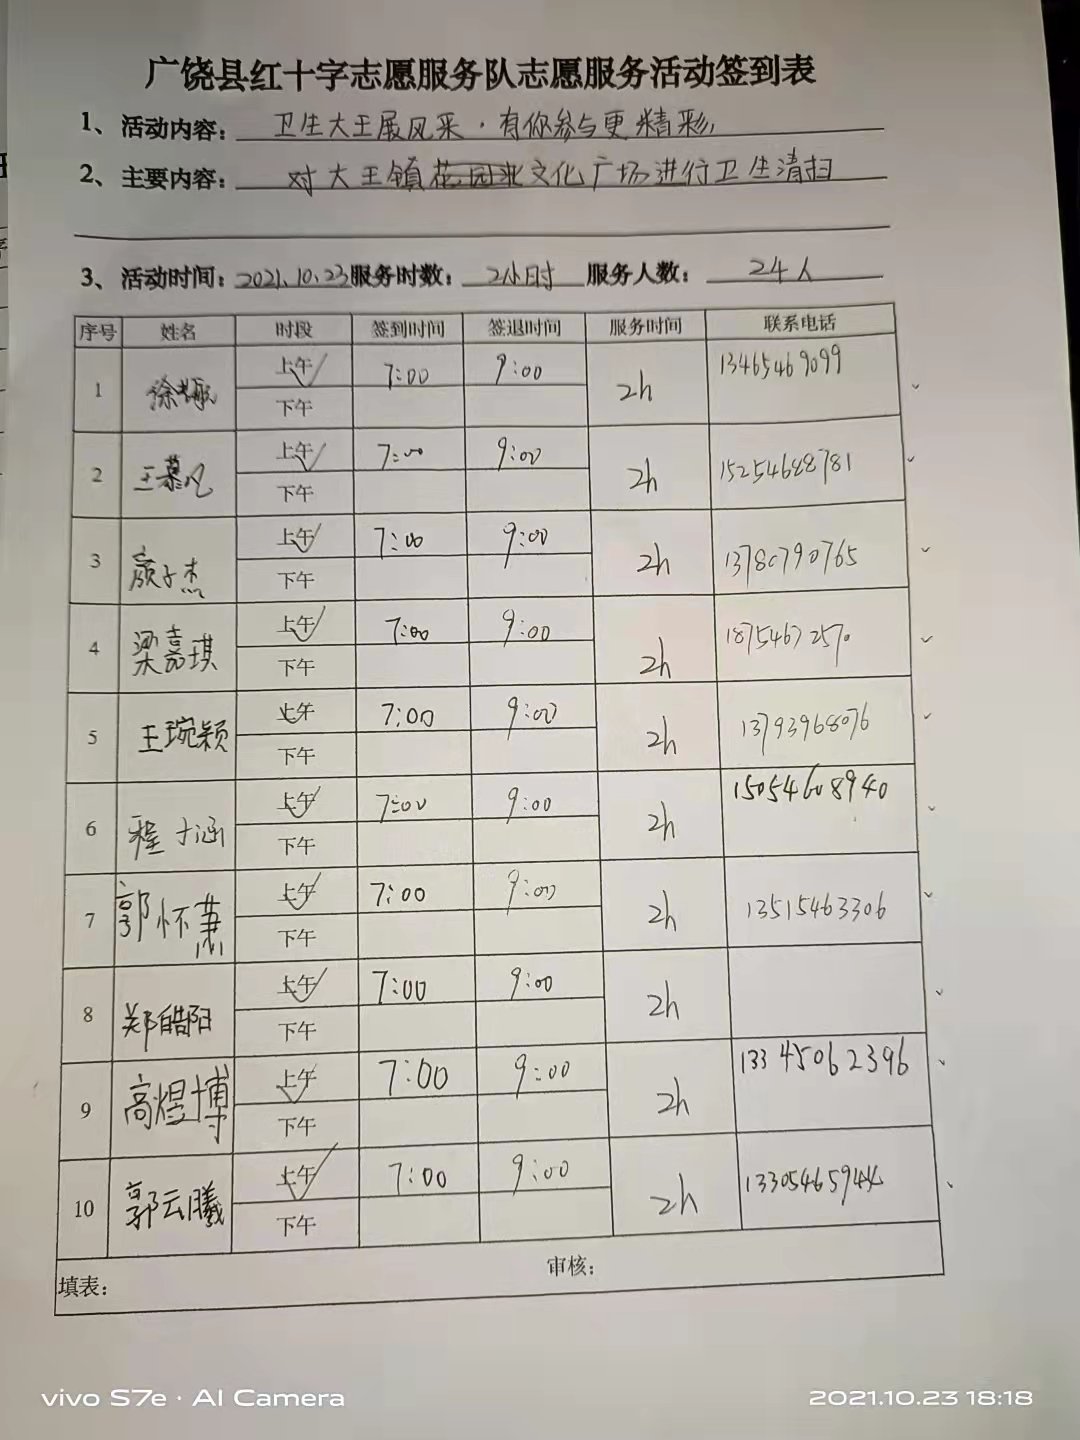 广饶县红十字志愿服务队志愿服务活动签到表
1、活动内容：卫生大王展风采，有你参与更精彩
2、主要内容：对大王镇花园北文化广场进行卫生清扫
3、活动时间：2021.10.23 服务时数：2小时 服务人数：24人
序号 姓名 时段 签到时间 签退时间 服务时间 联系电话
1 徐 上午 7:00 9:00 2h 13465469099
下午
2 王慕凡 上午 7:00 9:00 2h 15254688781
下午
3 子杰 上午 7:00 9:00 2h 13780790765
下午
4 梁嘉琪 上午 7:00 9:00 2h 18754672570
下午
5 王琬颖 上午 7:00 9:00 2h 13793968076
下午
6 程 涵 上午 7:00 9:00 2h 15054608940
下午
7 郭怀 上午 7:00 9:00 2h 13515463306
下午
8 郑皓阳 上午 7:00 9:00 2h
下午
9 高煜博 上午 7:00 9:00 2h 13345062396
下午
10 郭云曦 上午 7:00 9:00 2h
下午
填表： 审核：
vivo S7e · AI Camera 2021.10.23 18:18